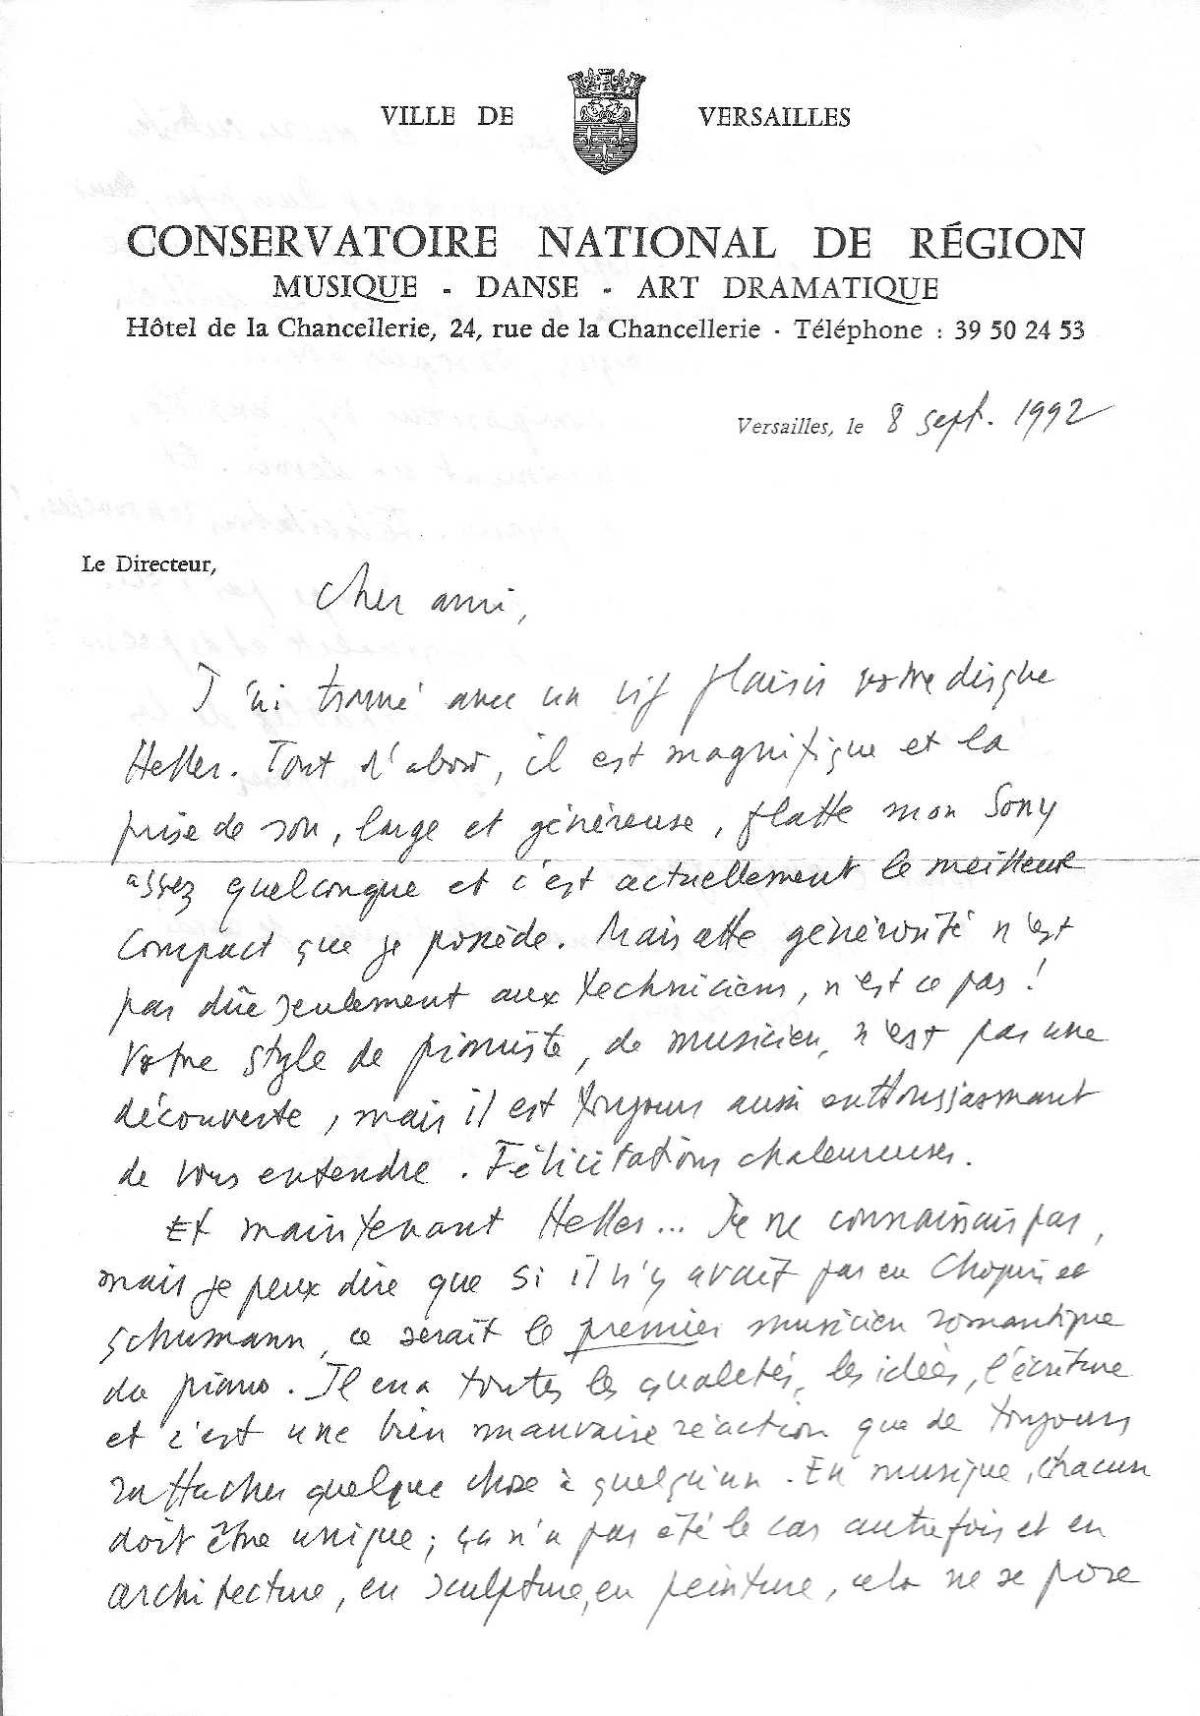 VILLE DE VERSAILLES
CONSERVATOIRE NATIONAL DE RÉGION
MUSIQUE - DANSE - ART DRAMATIQUE
Hôtel de la Chancellerie, 24, rue de la Chancellerie · Téléphone : 39 50 24 53
Versailles, le 8 sept. 1992
Le Directeur,
Cher ami,
J'ai trouvé avec un vif plaisir votre disque
Heller. Tout d'abord, il est magnifique et la
prise de son, large et généreuse, flatte mon Sony
assez quelconque et c'est actuellement le meilleur
Compact que je possède. Mais cette générosité n'est
pas dûe seulement aux techniciens, n'est ce pas !
Votre style de pianiste, de musicien, n'est pas une
découverte, mais il est toujours aussi enthousiasmant
de vous entendre. Félicitations chaleureuses.
Et maintenant Heller... Je ne connaissais pas,
mais je peux dire que si il n'y avait pas eu Chopin et
Schumann, ce serait le premier musicien romantique
du piano. Il en a toutes les qualités, les idées, l'écriture
et c'est une bien mauvaise réaction que de toujours
rattacher quelque chose à quelqu'un. En musique, chacun
doit être unique ; ça n'a pas été le cas autrefois et en
architecture, en sculpture, en peinture, cela ne se pose